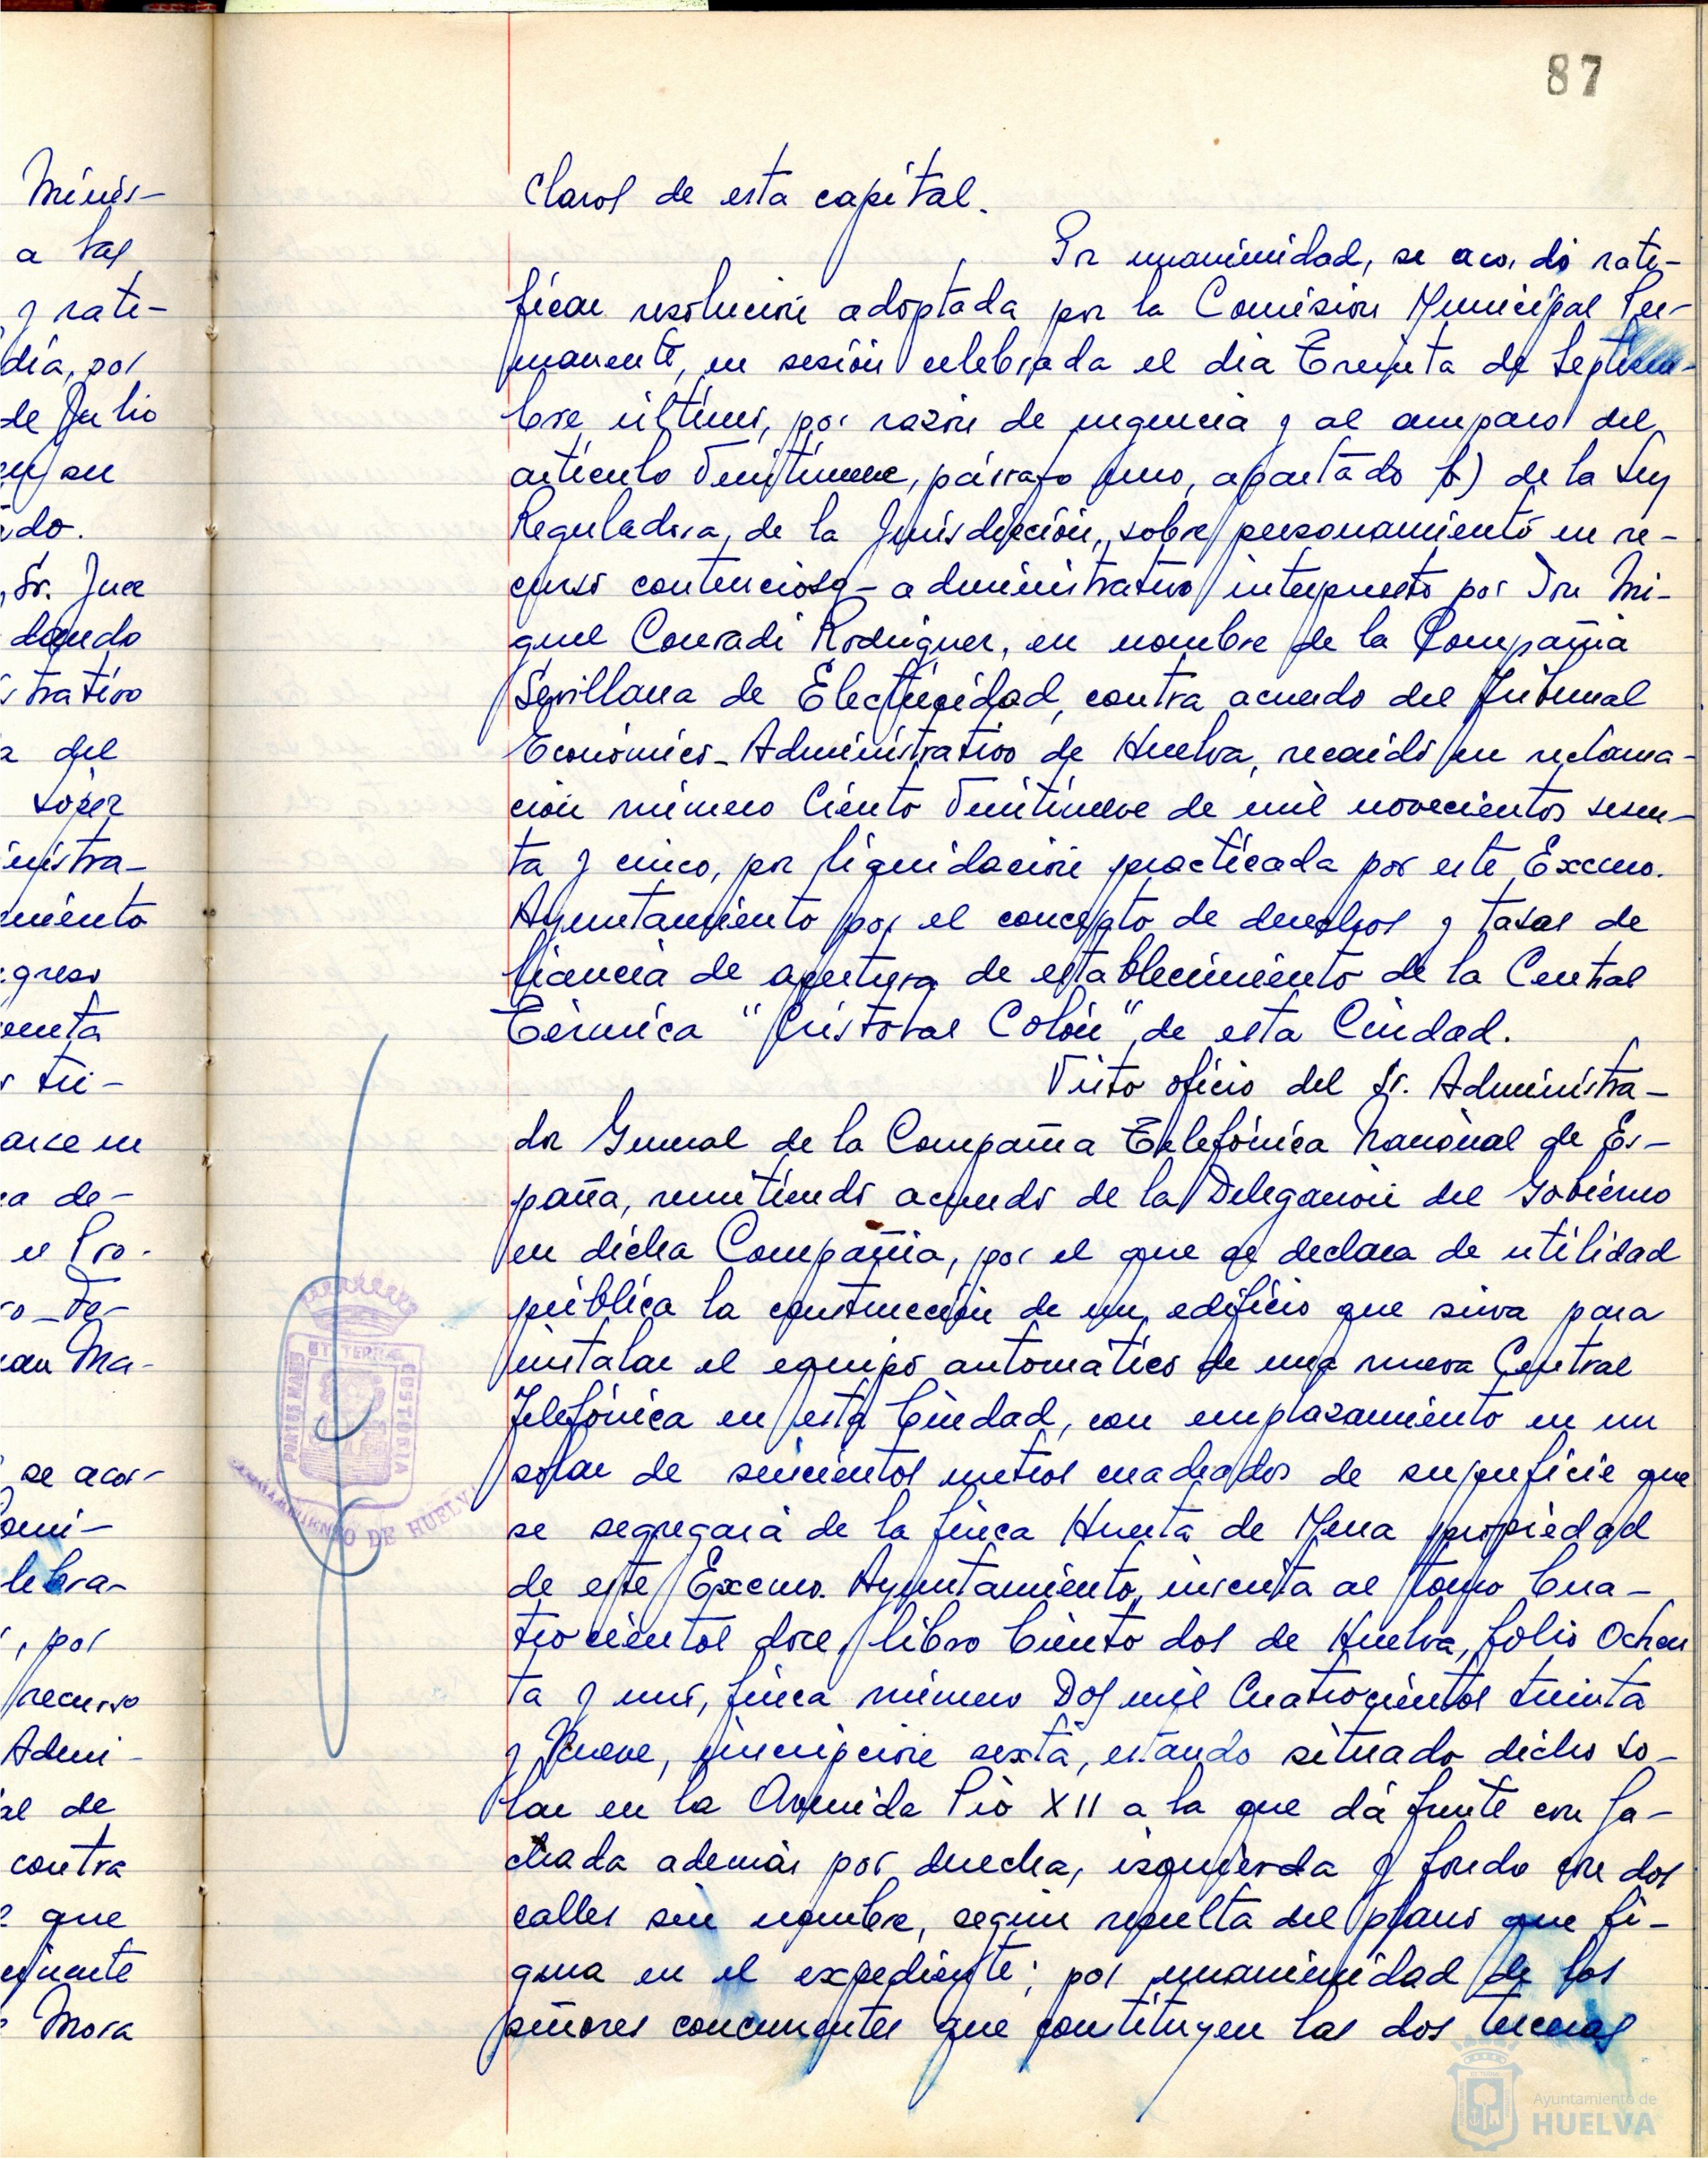 87
Minis-
a las
y rati-
día, por
de Julio
en su
do.
Sr. Juez
dando
strativo
a del
López
inistra-
miento
greso
uenta
r tri-
arse en
ca de-
el Pro-
o-De-
uan Ma-
se acor-
omi-
lebra-
, por
recurso
Admi-
al de
contra
e que
Mora
claros de esta capital.
Por unanimidad, se acordó rati-
ficar resolución adoptada por la Comisión Municipal Per-
manente, en sesión celebrada el dia Treinta de Septiem-
bre último, por razón de urgencia y al amparo del
artículo Veintinueve, párrafo uno, apartado b) de la Ley
Reguladora, de la Jurisdicción, sobre personamiento en re-
curso contencioso-administrativo interpuesto por Don Mi-
guel Conradi Rodriguez, en nombre de la Compañia
Sevillana de Electricidad, contra acuerdo del Tribunal
Económico-Administrativo de Huelva, recaido en reclama-
ción número Ciento Veintinueve de mil novecientos sesen-
ta y cinco, por liquidación practicada por este Excmo.
Ayuntamiento por el concepto de derechos y tasas de
licencia de apertura de establecimiento de la Central
Térmica "Cristobal Colón" de esta Ciudad.
Visto oficio del Sr. Administra-
dor General de la Compañia Telefónica Nacional de Es-
paña, remitiendo acuerdo de la Delegación del Gobierno
en dicha Compañia, por el que se declara de utilidad
pública la construcción de un edificio que sirva para
instalar el equipo automático de una nueva Central
Telefónica en esta Ciudad, con emplazamiento en un
solar de seiscientos metros cuadrados de superficie que
se segregará de la finca Huerta de Mena propiedad
de este Excmo. Ayuntamiento, inscrita al tomo Cua-
trocientos doce, libro Ciento dos de Huelva, folio Ochen
ta y uno, finca número Dos mil Cuatrocientos treinta
y Nueve, inscripción sexta, estando situado dicho so-
lar en la Avenida Pio XII a la que dá frente con fa-
chada además por derecha, izquierda y fondo con dos
calles sin nombre, según resulta del plano que fi-
gura en el expediente; por unanimidad de los
señores concurrentes que constituyen las dos terceras
PORTUS MARIS
ET TERRAE
CUSTODIA
AYUNTAMIENTO DE HUELVA
Ayuntamiento de
HUELVA